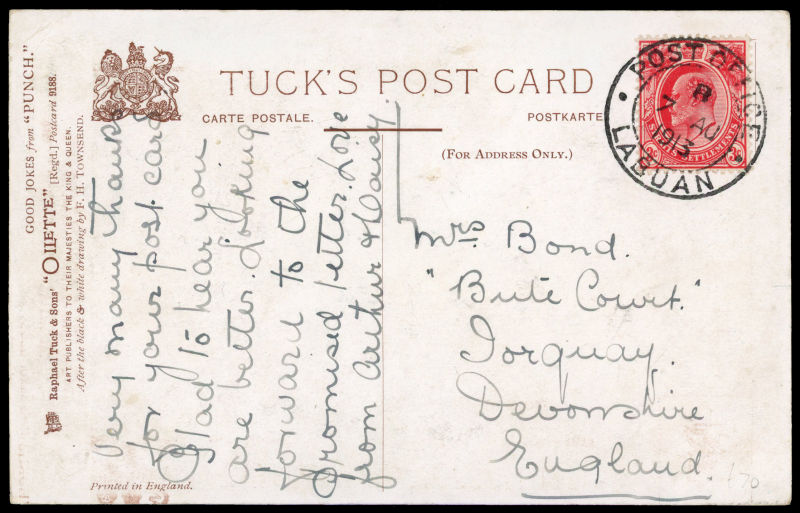 GOOD JOKES from "PUNCH."
Raphael Tuck & Sons' "OILETTE" [Regd.] Postcard 9188.
ART PUBLISHERS TO THEIR MAJESTIES THE KING & QUEEN.
After the black & white drawing by F. H. TOWNSEND.
TUCK'S POST CARD
CARTE POSTALE.
POSTKARTE
(FOR ADDRESS ONLY.)
POST OFFICE
B
7 AU
1913
LABUAN
STRAITS SETTLEMENTS
Very many thanks
for your post card
Glad to hear you
are better. Looking
forward to the
promised letter. Love
from Arthur & Daisy.
Mrs Bond.
"Bute Court."
Torquay.
Devonshire
England.
Printed in England.
170